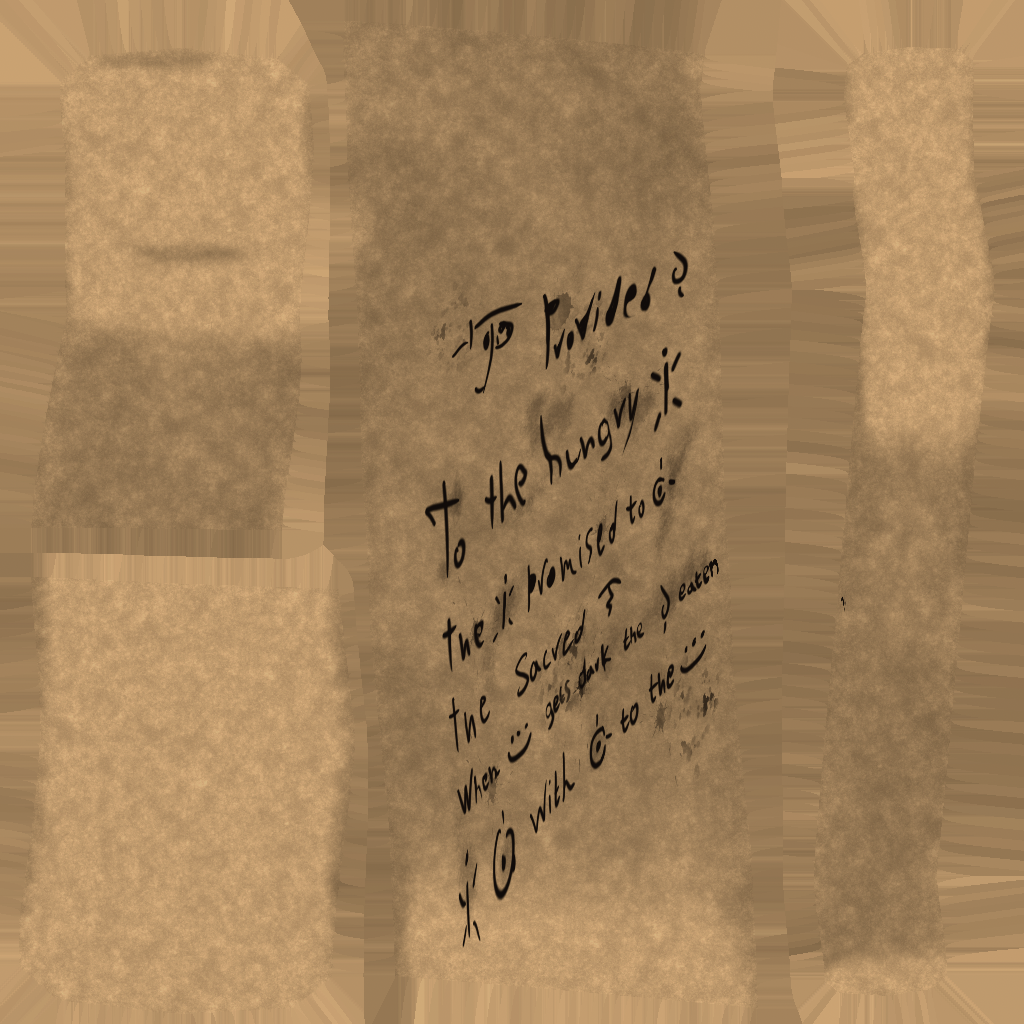 Provided
To the hungry
the promised to
the Sacred
When gets dark the eaten
with to the